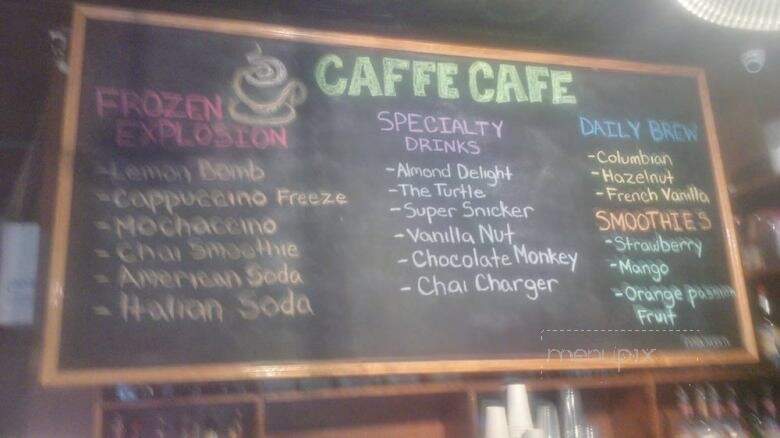 CAFFE CAFE
FROZEN
EXPLOSION
-Lemon Bomb
-Cappuccino Freeze
-Mochaccino
-Chai Smoothie
-American Soda
-Italian Soda
SPECIALTY
DRINKS
-Almond Delight
-The Turtle
-Super Snicker
-Vanilla Nut
-Chocolate Monkey
-Chai Charger
DAILY BREW
-Columbian
-Hazelnut
-French Vanilla
SMOOTHIES
-Strawberry
-Mango
-Orange passion
Fruit
menupix